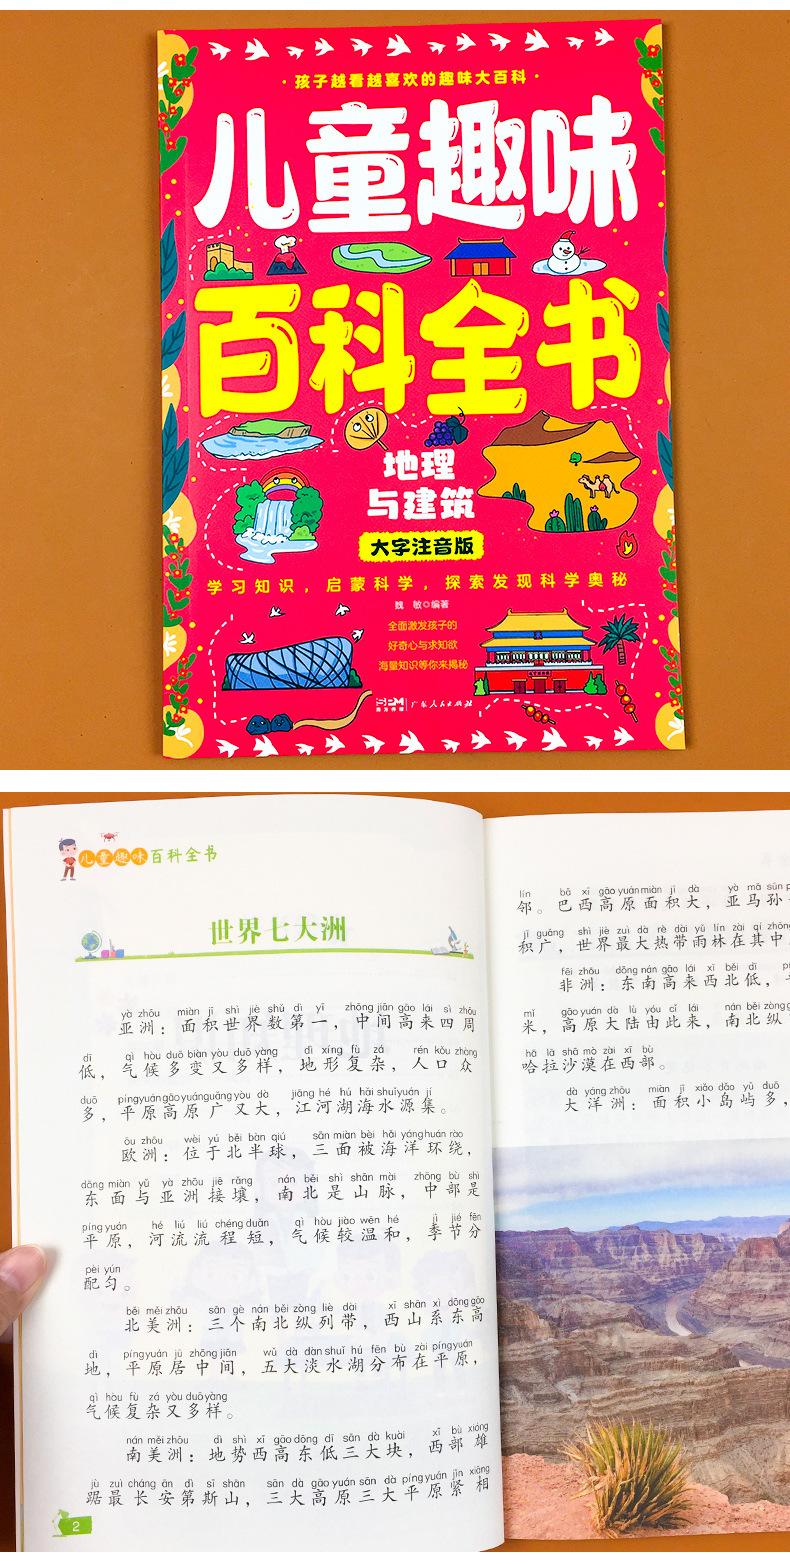 ·孩子越看越喜欢的趣味大百科·
儿童趣味
百科全书
地理
与建筑
大字注音版
学习知识，启蒙科学，探索发现科学奥秘
魏 敏◎编著
全面激发孩子的
好奇心与求知欲
海量知识等你来揭秘
SPM 南方传媒 广东人民出版社
儿童趣味百科全书
世界七大洲
yà zhōu miàn jī shì jiè shǔ dì yī zhōng jiān gāo lái sì zhōu
亚洲：面积世界数第一，中间高来四周
dī qì hòu duō biàn yòu duō yàng dì xíng fù zá rén kǒu zhòng
低，气候多变又多样，地形复杂，人口众
duō píng yuán gāo yuán guǎng yòu dà jiāng hé hú hǎi shuǐ yuán jí
多，平原高原广又大，江河湖海水源集。
ōu zhōu wèi yú běi bàn qiú sān miàn bèi hǎi yáng huán rào
欧洲：位于北半球，三面被海洋环绕，
dōng miàn yǔ yà zhōu jiē rǎng nán běi shì shān mài zhōng bù shì
东面与亚洲接壤，南北是山脉，中部是
píng yuán hé liú liú chéng duǎn qì hòu jiào wēn hé jì jié fēn
平原，河流流程短，气候较温和，季节分
pèi yún
配匀。
běi měi zhōu sān gè nán běi zòng liè dài xī shān xì dōng gāo
北美洲：三个南北纵列带，西山系东高
dì píng yuán jū zhōng jiān wǔ dà dàn shuǐ hú fēn bù zài píng yuán
地，平原居中间，五大淡水湖分布在平原，
qì hòu fù zá yòu duō yàng
气候复杂又多样。
nán měi zhōu dì shì xī gāo dōng dī sān dà kuài xī bù xióng
南美洲：地势西高东低三大块，西部雄
jù zuì cháng ān dì sī shān sān dà gāo yuán sān dà píng yuán jǐn xiāng
踞最长安第斯山，三大高原三大平原紧相
2
lín bā xī gāo yuán miàn jī dà yà mǎ sūn p
邻。巴西高原面积大，亚马孙
jī guǎng shì jiè zuì dà rè dài yǔ lín zài qí zhōng
积广，世界最大热带雨林在其中
fēi zhōu dōng nán gāo lái xī běi dī
非洲：东南高来西北低，
mǐ gāo yuán dà lù yóu cǐ lái nán běi zòng
米，高原大陆由此来，南北纵
hā lā shā mò zài xī bù
哈拉沙漠在西部。
dà yáng zhōu miàn jī xiǎo dǎo yǔ duō
大洋洲：面积小岛屿多，